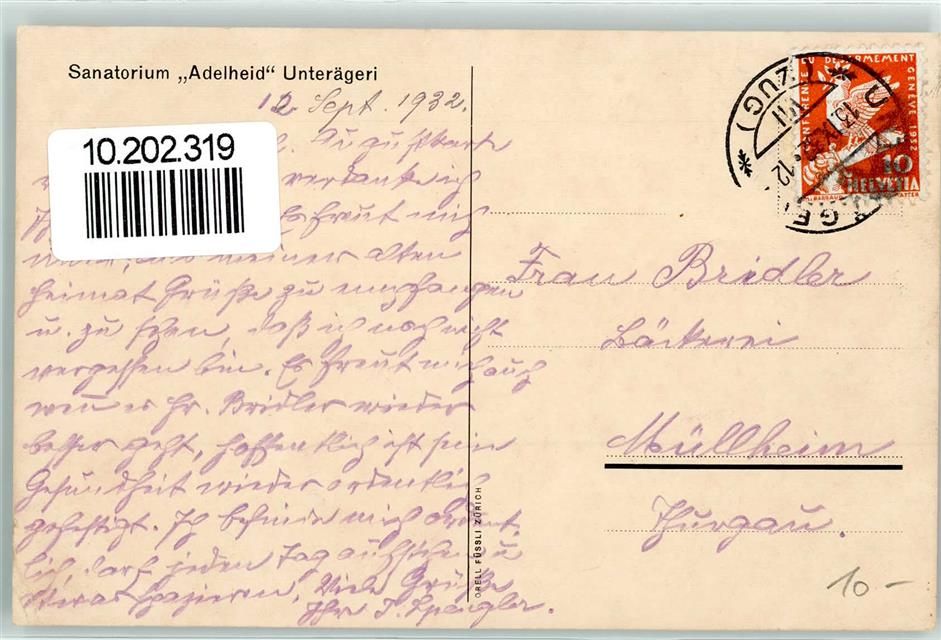 Sanatorium „Adelheid“ Unterägeri
12. Sept. 1932.
10.202.319
verdanke ich
freut mich
meiner alten
Heimat Grüße zu empfangen
u. zu sehen, daß ich noch nicht
vergessen bin. Es freut mich auch
wen es Hr. Bridler wieder
besser geht, hoffentlich ist sein
Gesundheit wieder ordentlich
gefestigt. Ich befinde mich ordent
lich, darf jeden Tag aufstehen u
etwas spazieren. Viele Grüße
Ihr T. Spengler.
ORELL FÜSSLI ZÜRICH
CONFERENCE DU DESARMEMENT GENEVE 1932
10
HELVETIA
(ZUG)
13. IX. 32. 12
Frau Bridler
Bäckerei
Müllheim
Thurgau.
10 -